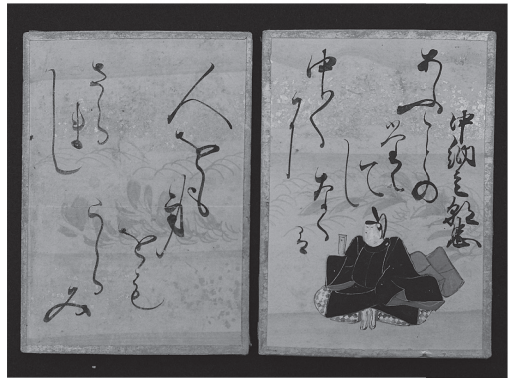 中納言朝忠
あふことの
たえて
し
なくは
中〳〵に
人をも
身
をも
うら
み
さら
まし